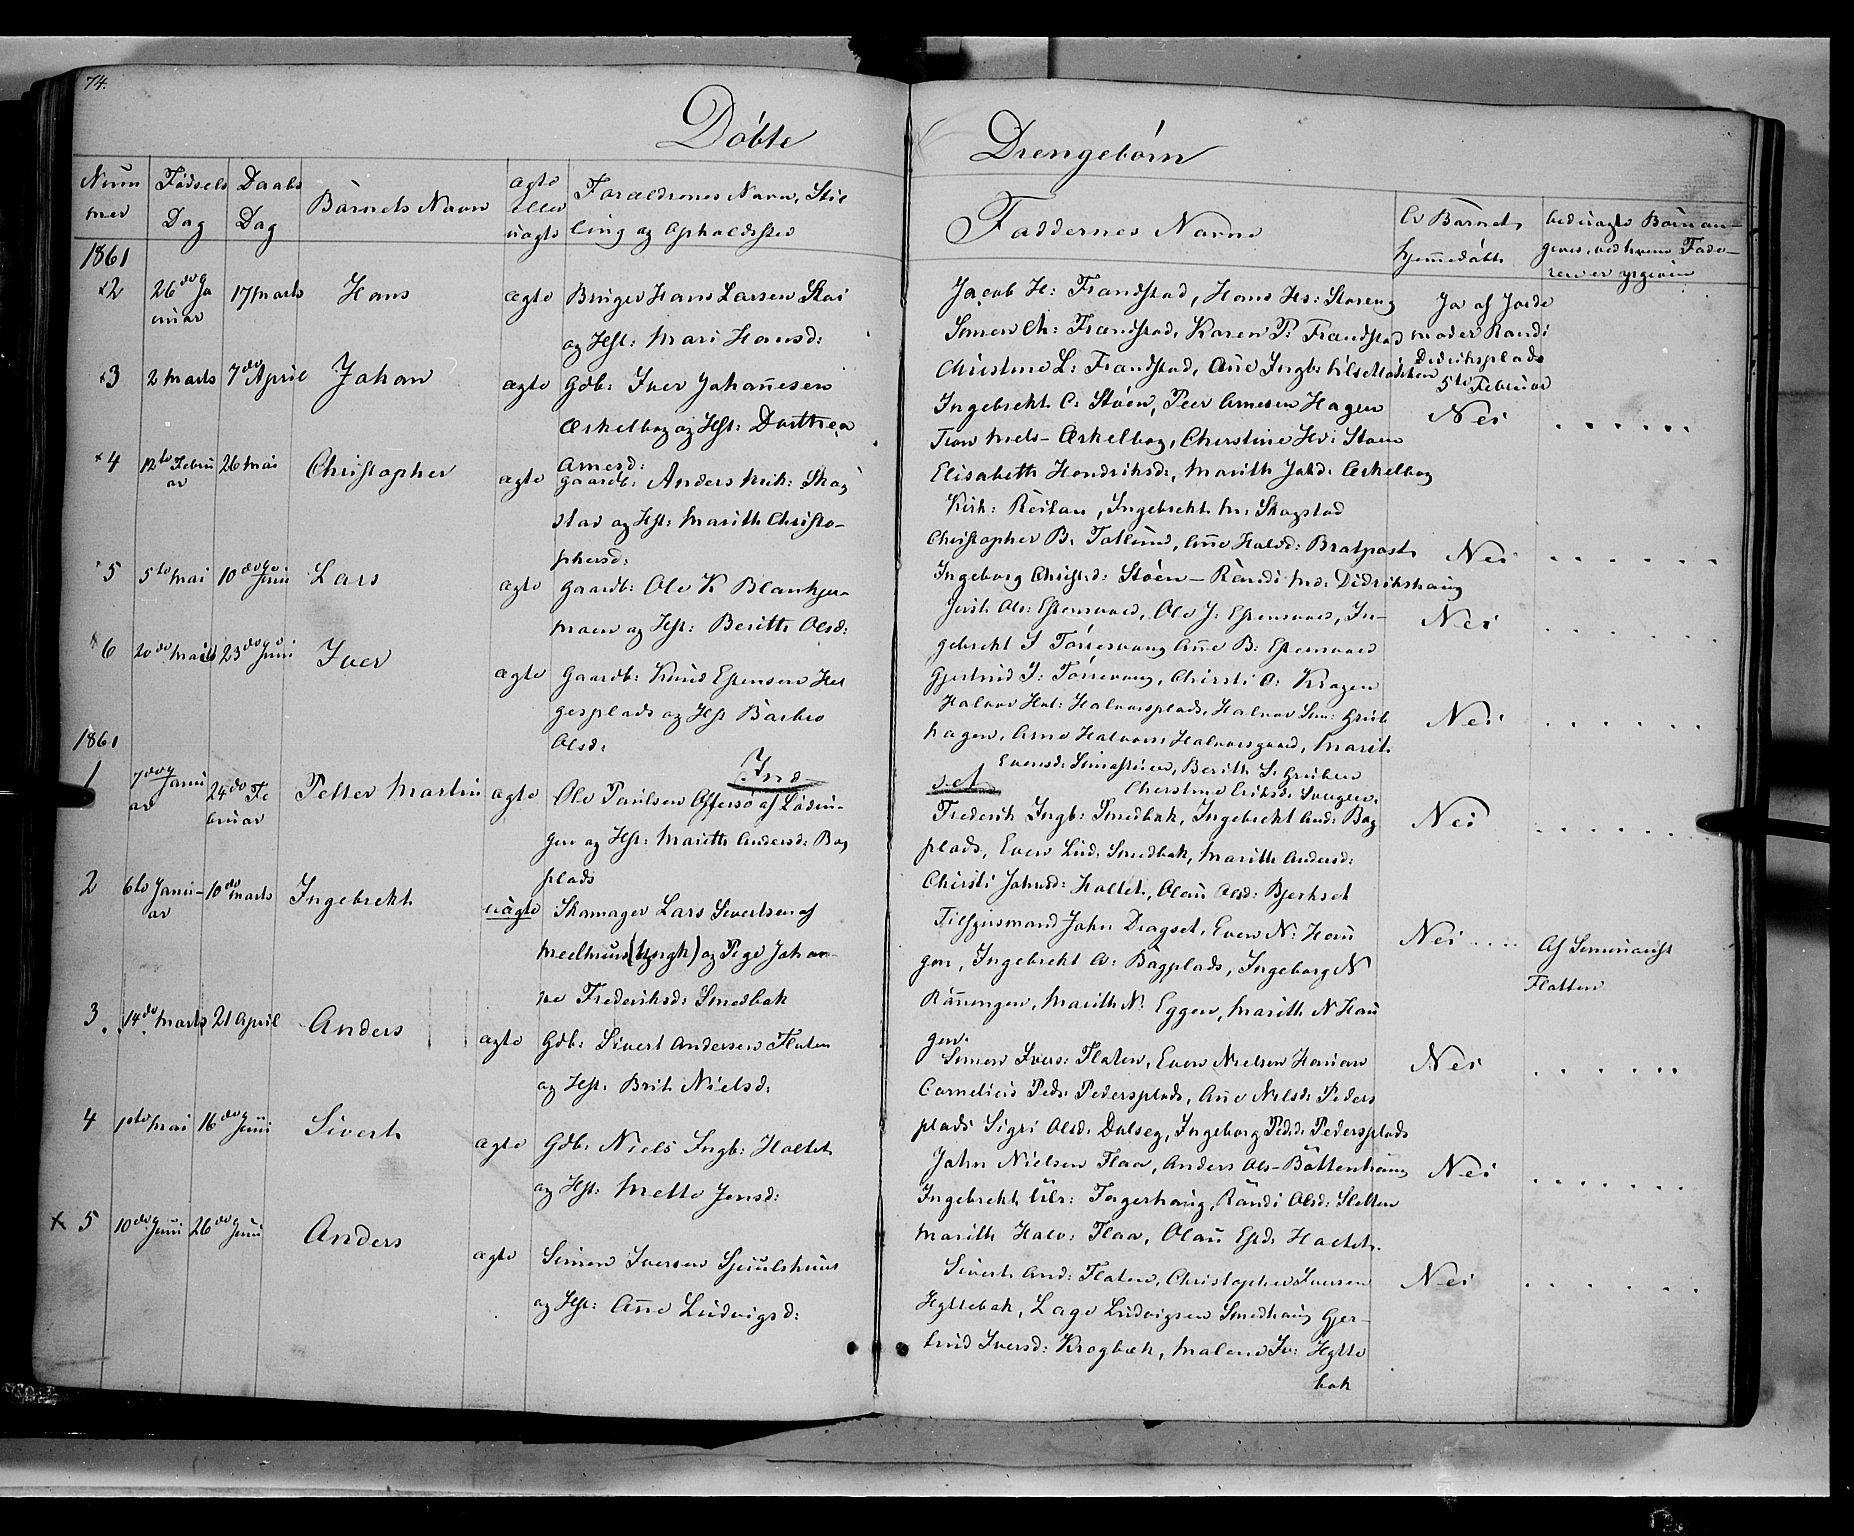 74.
Döbte Drengebörn
Num
mer
Födsels
Dag
Daabs
Dag
Barnets Navn
ægte
eller
uægte
Forældrenes Navn, Stil
ling og Opholdssted
Faddernes Navne
Er Barnet
hjemmedöbt
ved uægte Börn an-
gives, ved hvem Fade-
ren er
1861
×2 26de Ja
nuar
17 Marts
Hans
ægte
Bruger Hans Larsen
og Hst: Mari Hansd:
Jacob H: Frandstad, Hans Hs: Storeng
Simen Ch: Frandstad, Karen P: Frandstad
Christine L: Frandstad, Ane Ingb:
Ja af Jorde
moder Randi
Didriksplads
5te Februar
×3 2 Marts 7de April
Johan
ægte
Gdb: Iver Johannesen
Ærkelbog og Hst: Dorthea
Arnesd:
Ingebrekt C: Stöen, Peer Arnesen Hagen
Ærkelbog, Cherstine Hv: Stoen
Elisabeth Hendriksd:, Marith Johd: Ærkelbog
Nei . . . . . .
×4 12te Febru
ar
26 Mai
Christopher
ægte
Gaardb: Anders Krik: Skog
stad og Hst: Marith Christo-
phersd:
Kirk: Röstau, Ingebrekt Skogstad
Christopher B: Anne Halvd: Bratpost
Ingeborg Christd: Stöen – Randi Didrikshaug
Nei . . . . . .
5 5te Mai 10de Juni
Lars
ægte
Gaardb: Ole K Blankjer-
moen og Hst: Berith Olsd:
Olr: Espensvaed, Ole J: Espensvaed, In-
gebrekt I Tönsvang Anne B: Espensvaed
Gjertrud I: Tönsvang, Chirsti O: Kragen
Nei . . . . . .
×6 20de Marts 23de Juni
Iver
ægte
Gaardb: Knud Espensen Hel
gesplads og Hst Barbro
Olsd:
Halvor Hal: Halvorsplads, Halvor Sim: Grut
hagen, Arne Halvors: Halvorsgaard, Marit
Evensd: Berith S. Gruben
Cherstine Eriksd:
Nei . . . . . .
Ind
set
1861
1 7de Janu
ar
24de Fe
bruar
Petter Martin
ægte
Ole Paulsen af Lödin-
gen og Hst: Marith Andersd: Bag
plads
Frederik Ingb: Smedbak, Ingebrekt And: Bag
plads, Even Lud: Smedbak, Marith Andersd:
Chirsti Johnsd: Holtet, Olau Olsd: Bjerkset
Nei . . . . . . .
2 6te Janu-
ar
10de Marts
Ingebrekt
uægte
Skomager Lars Sivertsen af
Meelhuus og Pige Johan-
ne Frederiksd: Smedbak
John Dragset, Even N: Hau
gen, Ingebrekt A: Bagplads, Ingeborg N
Rönningen, Marith N: Eggen, Marith N Hau
gen.
Nei . . . .
Af
Flatten
3 14de Marts 21 April
Anders
ægte
Gdb: Sivert Andersen Flaten
og Hst: Brit Nielsd:
Simen Ivers: Flaten, Even Nielsen
Cornelius Peds: Pedersplads, Ane Nielsd: Peders
plads Sigri Olsd: Dalseg, Ingeborg Pedd: Pedersplads
Nei . . . . . .
4 1ste Mai 16de Juni
Sivert
ægte
Gdb: Niels Ingb: Holtet
og Hst: Mette Jensd:
John Nielsen Flaa, Anders Ols– Böttenhaug
Ingebrekt Ulr: Fagerhaug, Randi Olsd: Sletten
Marith Halv: Flaa, Olau Espd: Holtet.
Nei . . . . . . .
× 5 10de Juni 26de Juni
Anders
ægte
Simen Iversen Sjeuelshuus
og Hst: Ane Ludvigsd:
Sivert And: Flaten, Christopher Iversen
Hyttebak, Lage Ludvigsen Smedhaug Gjer-
trud Iversd: Krogbæk, Malene Iv: Hytte
bak
Nei . . . . . .